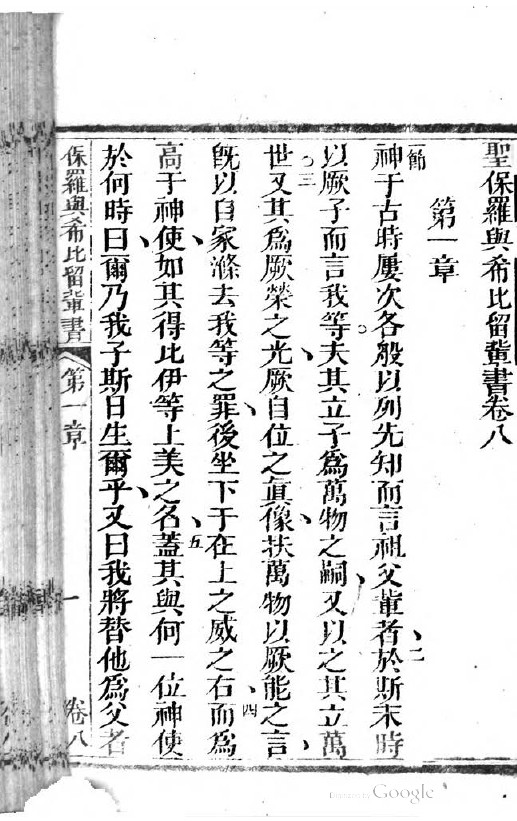 聖保羅與希比留輩書卷八
第一章
節神于古時屢次各般以列先知而言祖父輩者於斯末時
以厥子而言我等夫其立子爲萬物之嗣又以之其立萬
世又其爲厥榮之光厥自位之眞像扶萬物以厥能之言
旣以自家滌去我等之罪後坐下于在上之威之右而爲
高于神使如其得比伊等上美之名蓋其與何一位神使
於何時曰爾乃我子斯日生爾乎又曰我將替他爲父者
保羅與希比留輩書 第一章 一 卷八
Digitized by Google